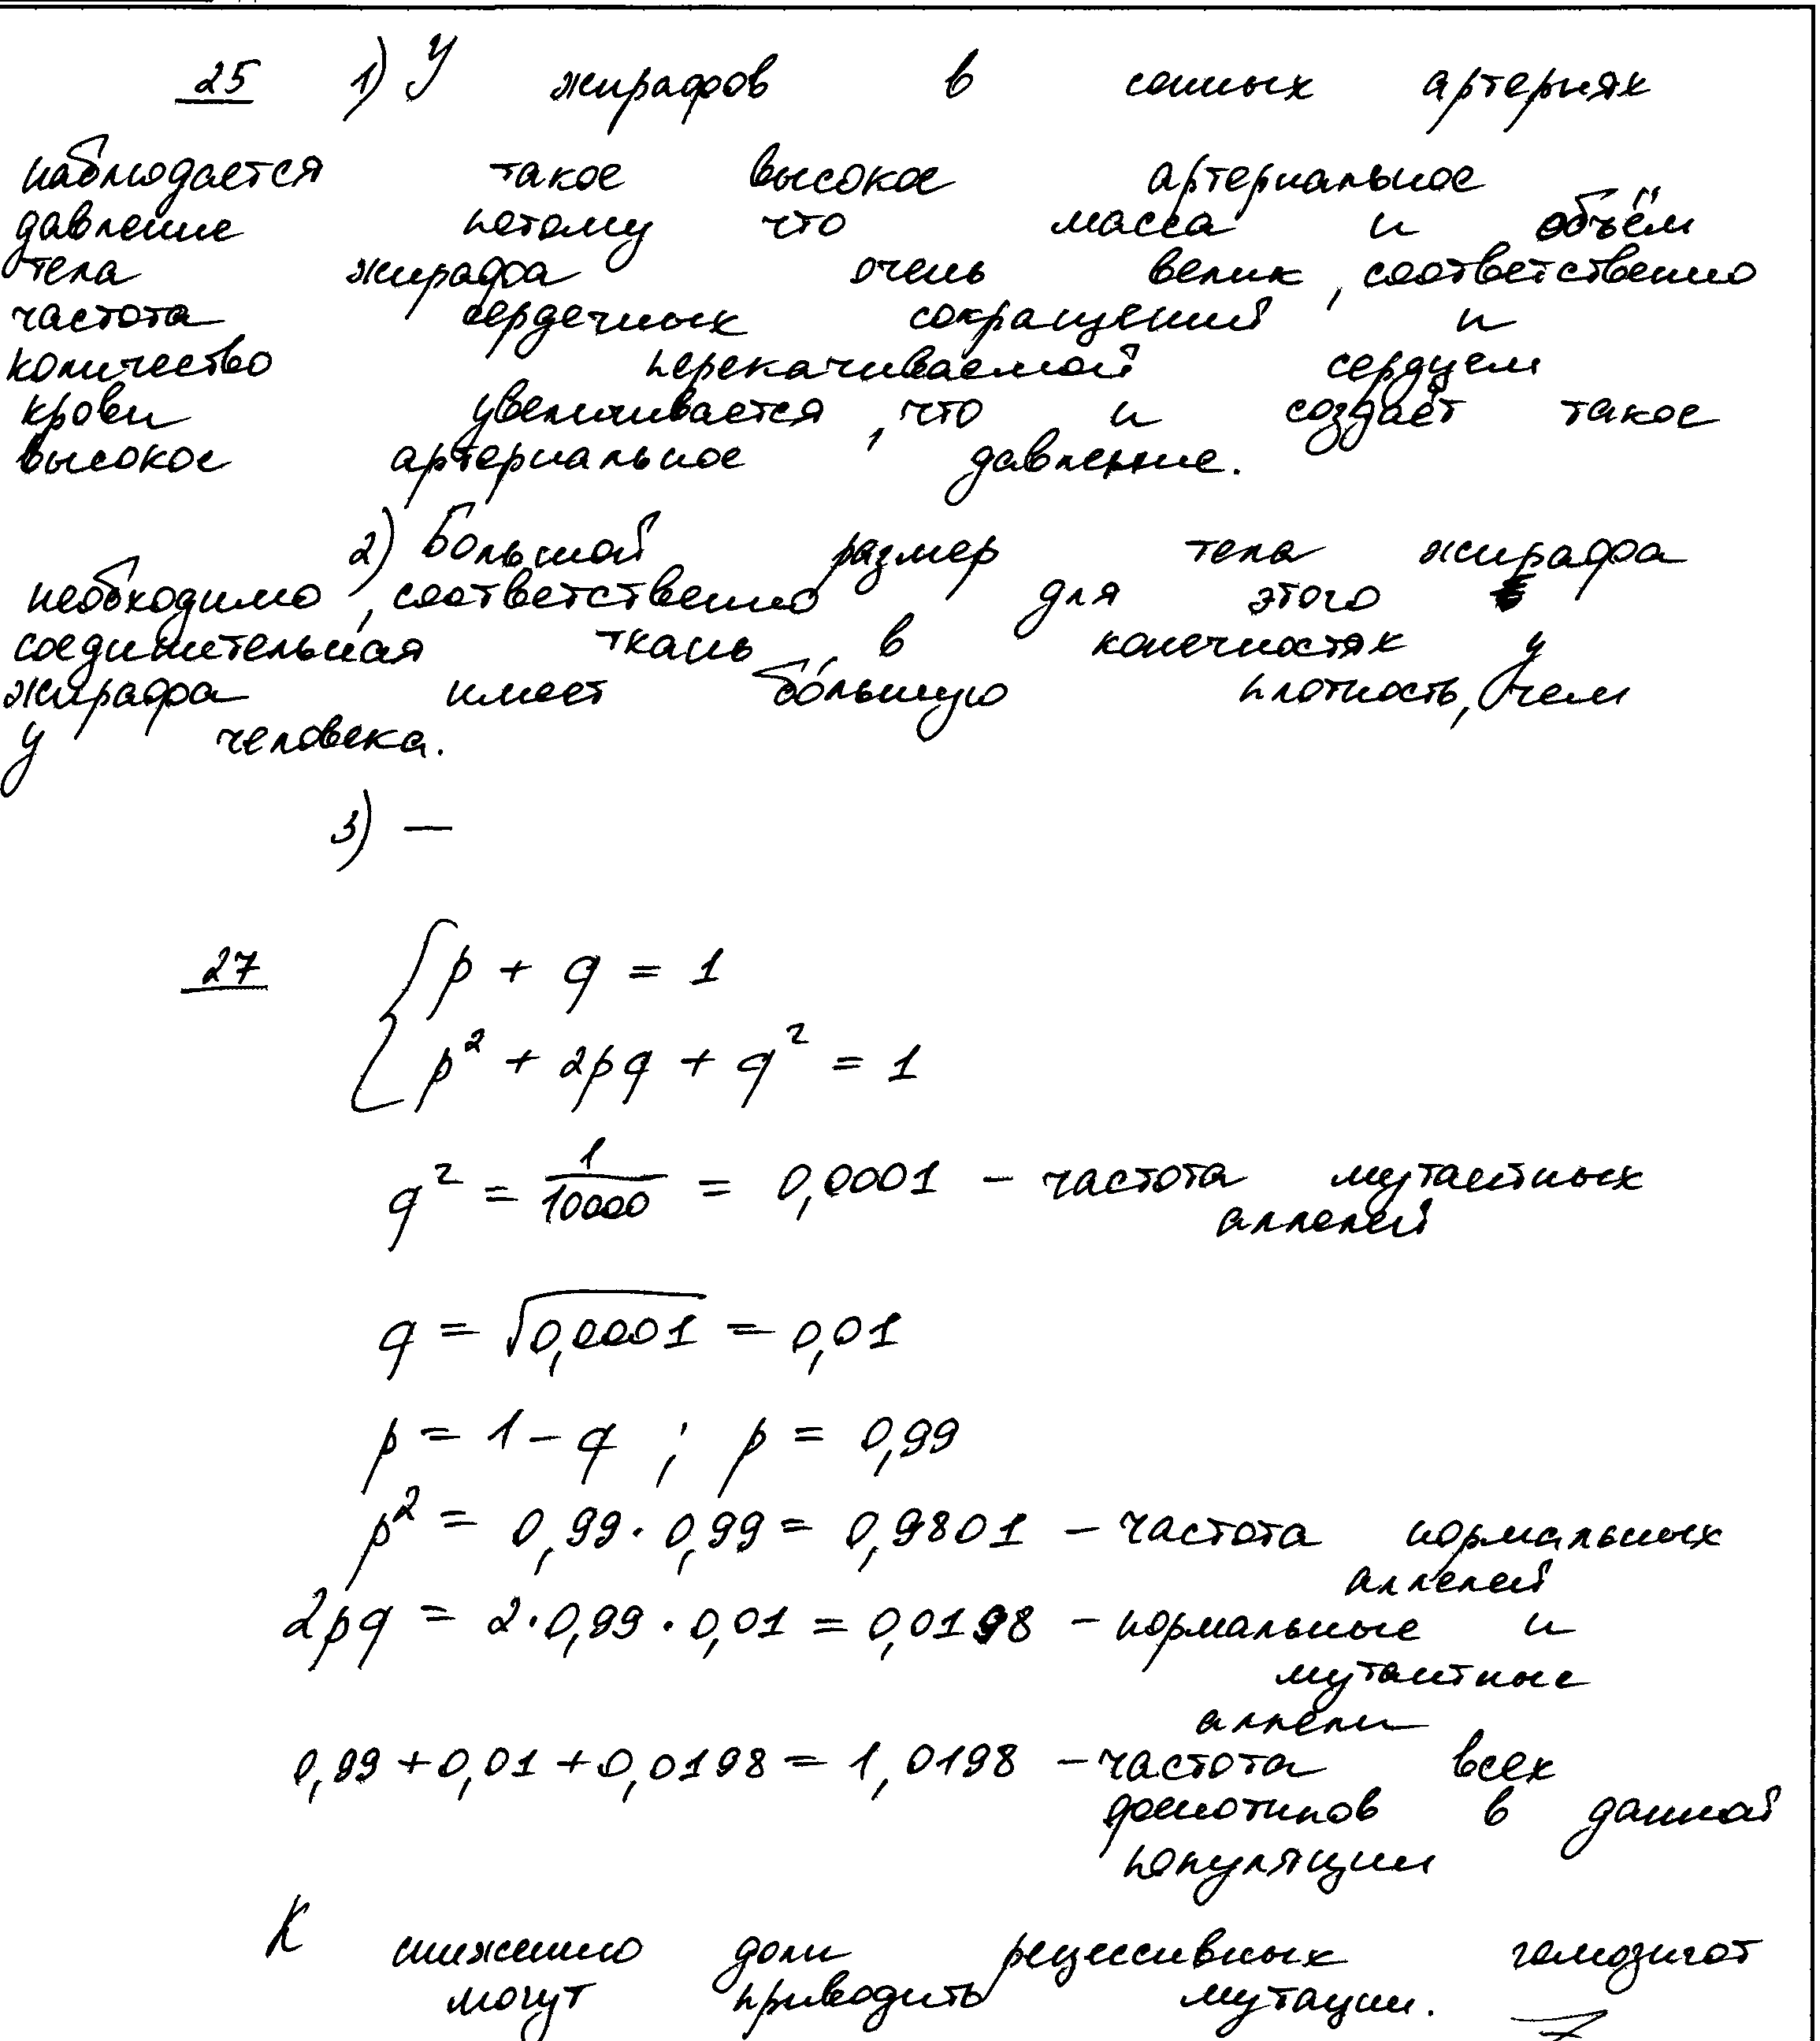 25 1) У жирафов в сонных артериях
наблюдается такое высокое артериальное
давление потому что масса и объём
тела жирафа очень велик, соответственно
частота сердечных сокращений и
количество перекачиваемой сердцем
крови увеличивается, что и создаёт такое
высокое артериальное давление.
2) Большой размер тела жирафа
необходимо, соответственно для этого
соединительная ткань в конечностях у
жирафа имеет бо́льшую плотность, чем
у человека.
3) —
27 p + q = 1
p² + 2pq + q² = 1
q² = 1/10000 = 0,0001 – частота мутантных
аллелей
q = √0,0001 = 0,01
p = 1 – q ; p = 0,99
p² = 0,99 · 0,99 = 0,9801 – частота нормальных
аллелей
2pq = 2 · 0,99 · 0,01 = 0,0198 – нормальные и
мутантные
аллели
0,99 + 0,01 + 0,0198 = 1,0198 – частота всех
фенотипов в данной
популяции
К снижению доли рецессивных гомозигот
могут приводить мутации.